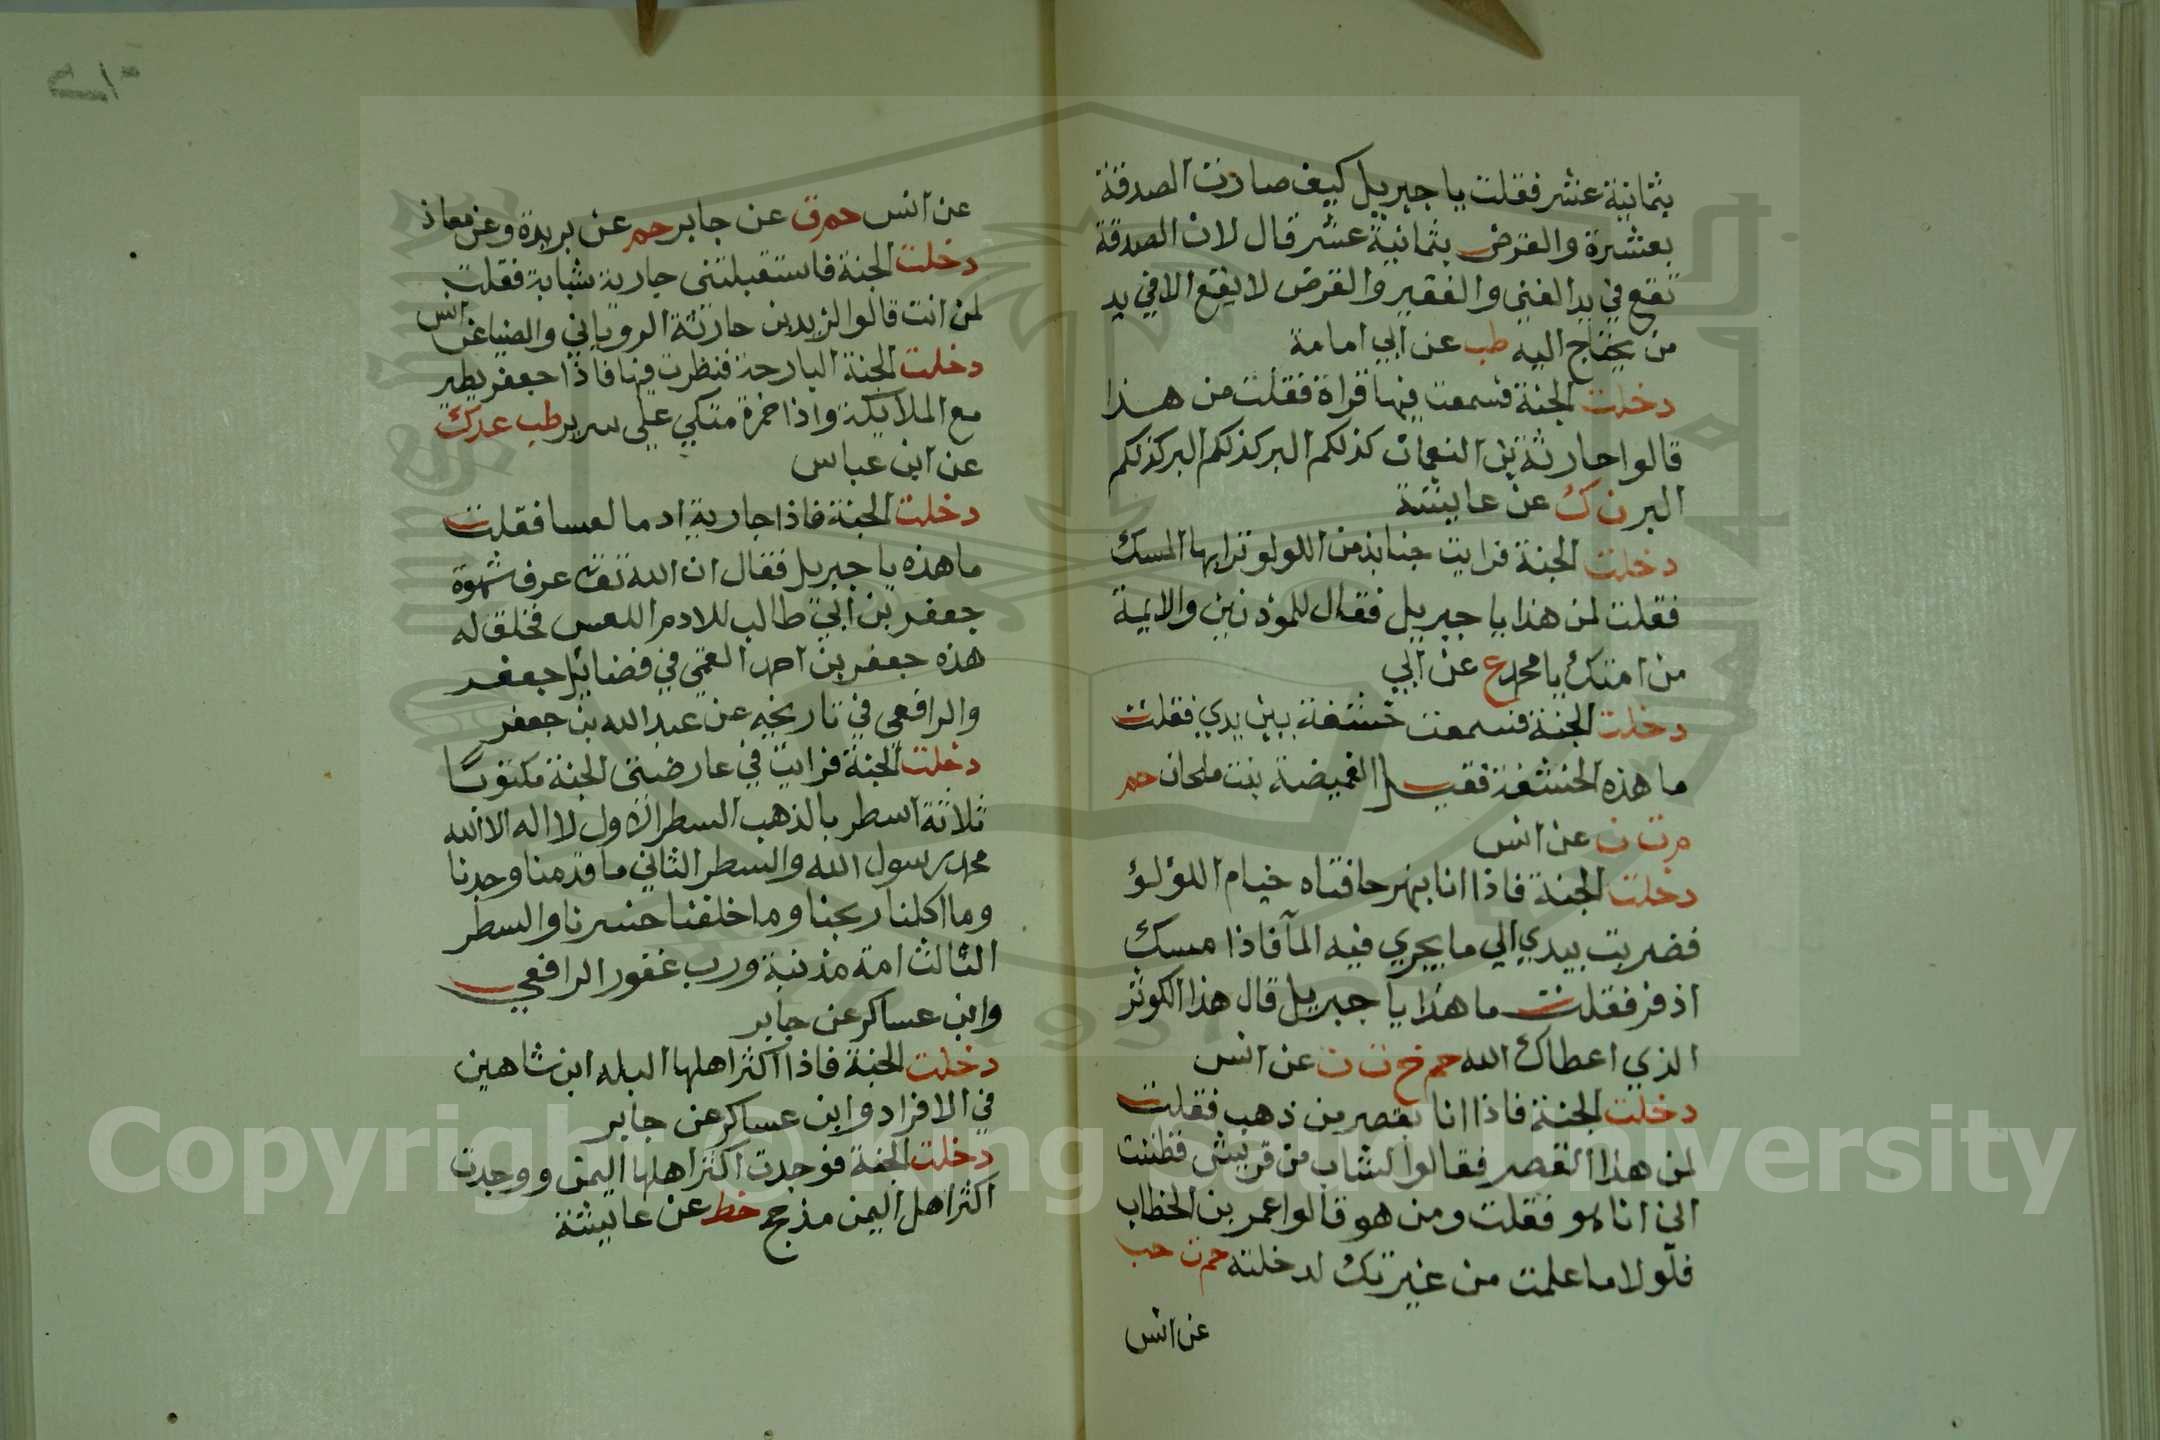 بثمانية عشر فقلت يا جبريل كيف صارت الصدقة
بعشرة والقرض بثمانية عشر قال لان الصدقة
تقع في يد الغني والفقير والقرض لا يقع الا في يد
من يحتاج اليه طب عن ابي امامة
دخلت الجنة فسمعت فيها قراة فقلت من هذا
قالوا حارثة بن النعمان كذلكم البر كذلكم البر كذلكم
البر ن ك عن عايشة
دخلت الجنة فرايت جنابذ من اللولو ترابها المسك
فقلت لمن هذا يا جبريل فقال للموذنين والايمة
من امتك يا محمد ع عن ابي
دخلت الجنة فسمعت خشفة بين يدي فقلت
ما هذه الخشفة فقيل الغميضة بنت ملحان حم
م ت ن عن انس
دخلت الجنة فاذا انا بنهر حافتاه خيام اللؤلؤ
فضربت بيدي الي ما يجري فيه المآ فاذا مسك
اذفر فقلت ما هذا يا جبريل قال هذا الكوثر
الذي اعطاك الله حم خ ت ن عن انس
دخلت الجنة فاذا انا بقصر من ذهب فقلت
لمن هذا القصر فقالوا لشاب من قريش فظننت
اني انا هو فقلت ومن هو قالوا عمر بن الخطاب
فلولا ما علمت من غيرتك لدخلته حم ت حب
عن انس
عن انس حم ق عن جابر حم عن بريدة وعن معاذ
دخلت الجنة فاستقبلتني جارية شابة فقلت
لمن انت قالوا لزيد بن حارثة الروياني والضيا عن انس
دخلت الجنة البارحة فنظرت فيها فاذا جعفر يطير
مع الملايكة واذا حمزة متكي علي سرير طب عد ك
عن ابن عباس
دخلت الجنة فاذا جارية ادما لعسا فقلت
ما هذه يا جبريل فقال ان الله تعالى عرف شهوة
جعفر بن ابي طالب للادم اللعس فخلق له
هذه جعفر بن احمد القمي في فضايل جعفر
والرافعي في تاريخه عن عبد الله بن جعفر
دخلت الجنة فرايت في عارضتي الجنة مكتوبًا
ثلاثة اسطر بالذهب السطر الاول لا اله الا الله
محمد رسول الله والسطر الثاني ما قدمنا وجدنا
وما اكلنا ربحنا وما خلفنا خسرنا والسطر
الثالث امة مذنبة ورب غفور الرافعي
وابن عساكر عن جابر
دخلت الجنة فاذا اكثر اهلها البله ابن شاهين
في الافراد وابن عساكر عن جابر
دخلت الجنة فوجدت اكثر اهلها اليمن ووجدت
اكثر اهل اليمن مذحج خط عن عايشة
Copyright © King Saud University
1957